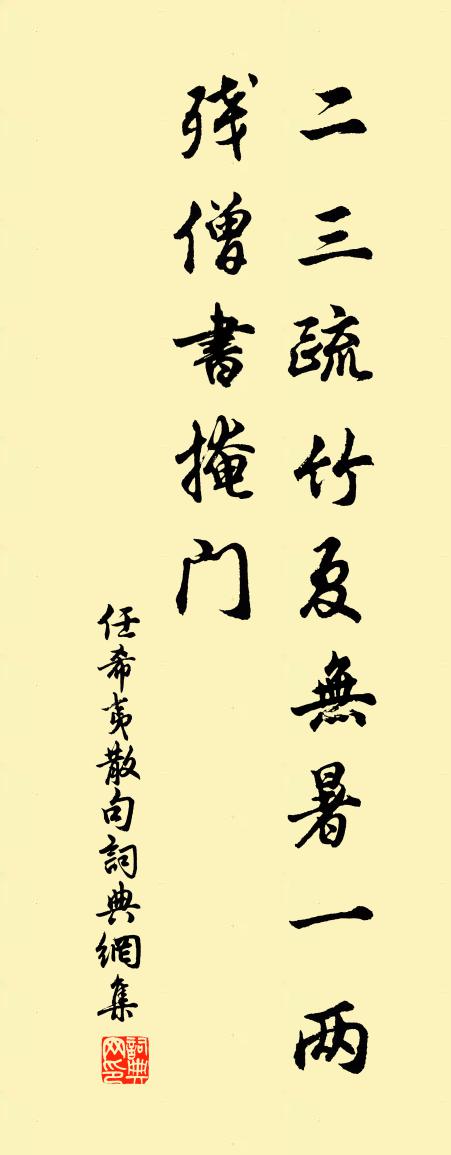 二三疏竹夏無暑一两
残僧書掩门
任希夷散句詞典網集
詞典网印